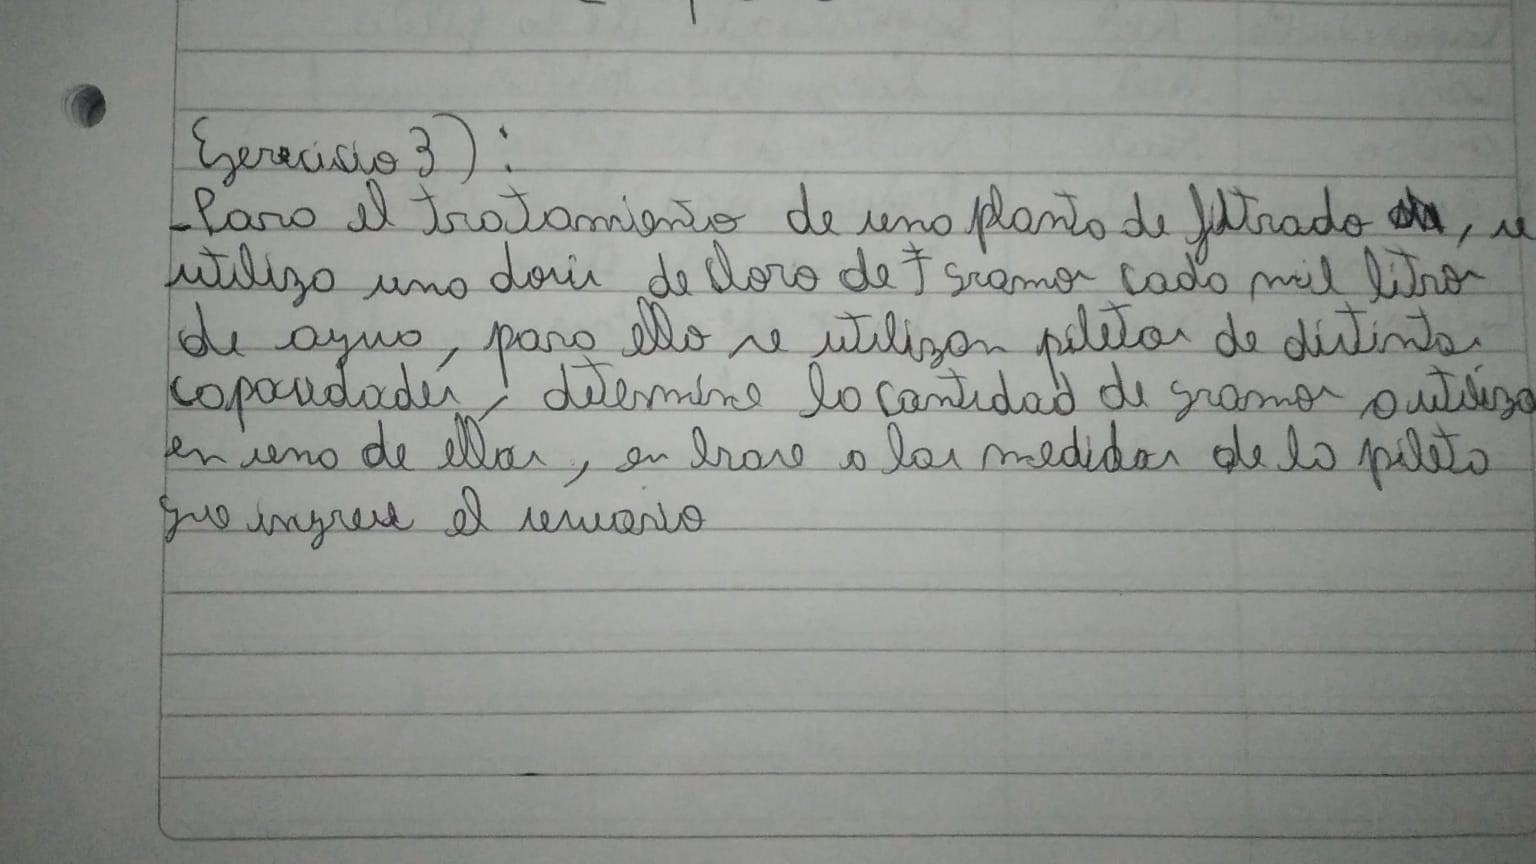 Ejercicio 3):
-Para el tratamiento de una planta de filtrado, se
utiliza una dosis de cloro de 7 gramos cada mil litros
de agua, para ello se utilizan piletas de distintas
capacidades, determine la cantidad de gramos a utilizar
en una de ellas, en base a las medidas de la pileta
que ingrese el usuario